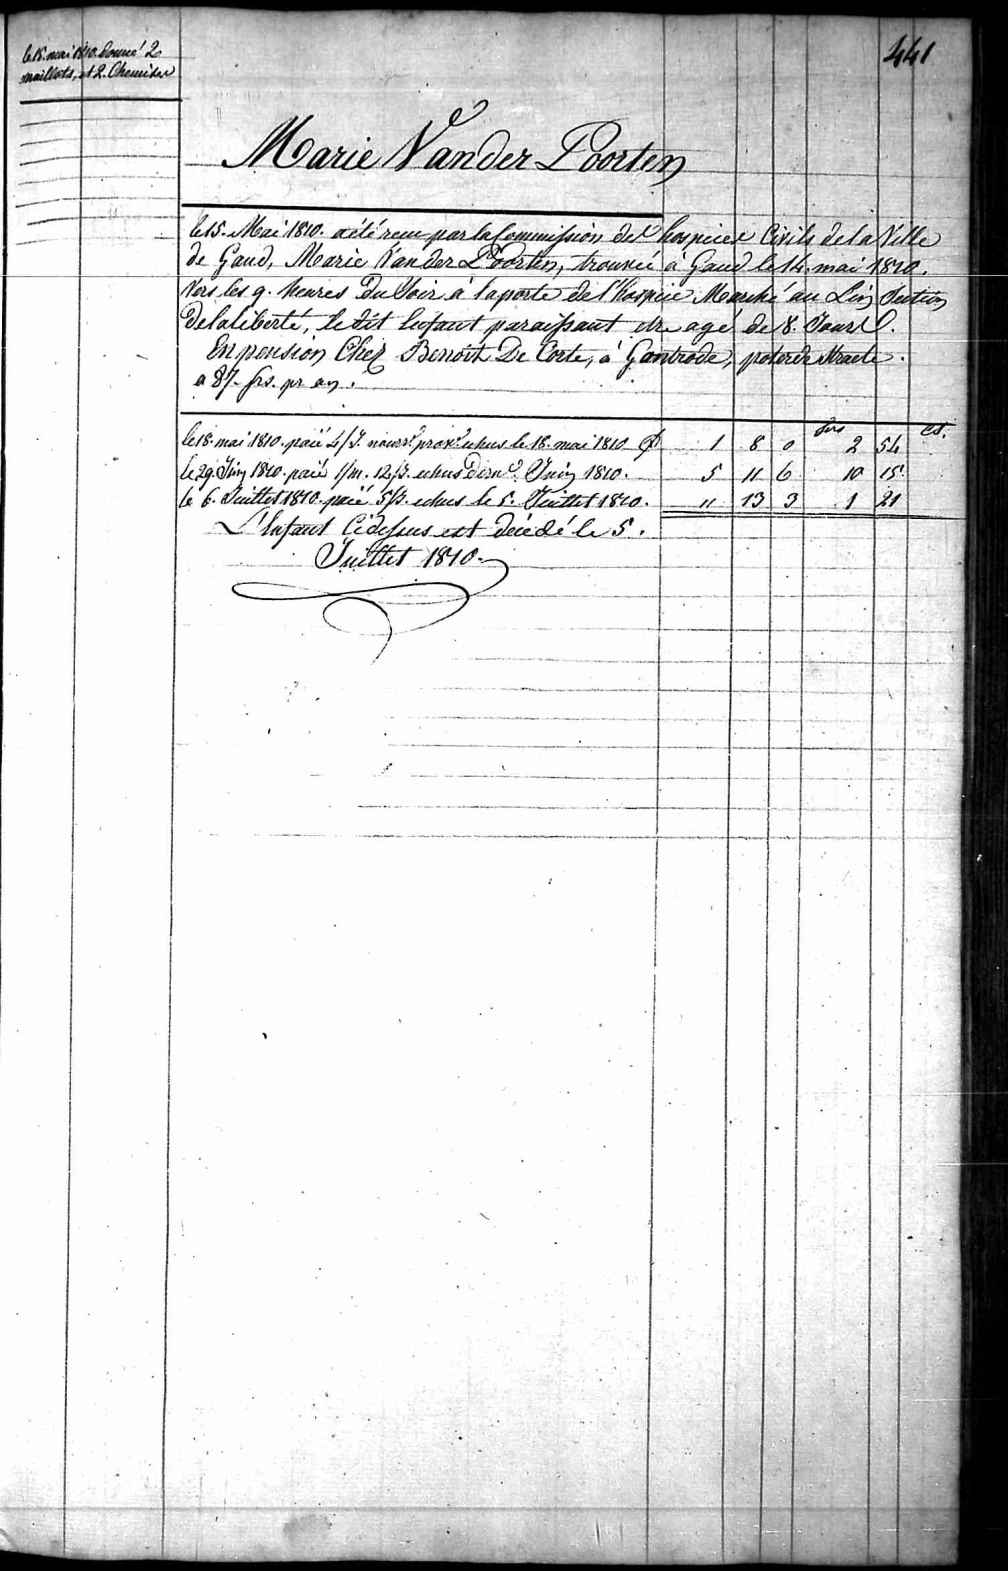 441
le 18. mai 1810. donné 2
maillots, et 2. Chemises
Marie Van der Poorten
le 15. Mai 1810. a été recu par la Commission des hospices Civils de la Ville
de Gand, Marie Van der Poorten, trouvée à Gand le 14. mai 1810.
Vers les 9. heures du Soir à la porte de l'Hospice Marché au Lin, Section
de la liberté, le dit Enfant paraissant etre agé de 8. Jours.
En pension Chez Benoit De Corte, à Gontrode,
a 87. frs. pr an.
frs ct.
le 18. mai 1810. paié 4/J. nourre. prove. echus le 18. mai 1810 1 8 0 2 54
le 29. Juin 1810. paié 1/m. 12/J. echus Juin 1810. 5 11 6 10 15
le 6. Juillet 1810. paié 5/J. echus le 5. Juillet 1810. " 13 3 1 21
L'Enfant Cidessus est décédé le 5.
Juillet 1810.